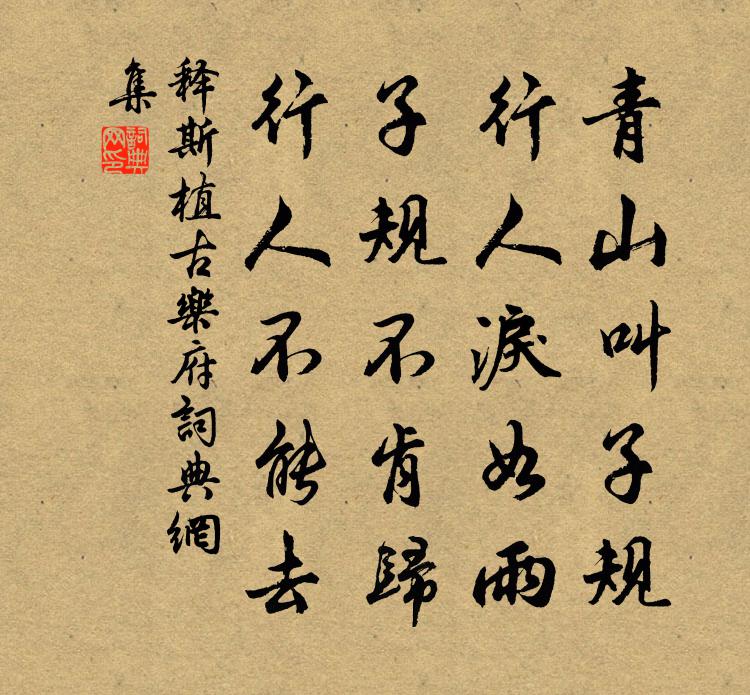 青山叫子規
行人淚如雨
子規不肯歸
行人不能去
释斯植古樂府詞典網
集
詞典網印